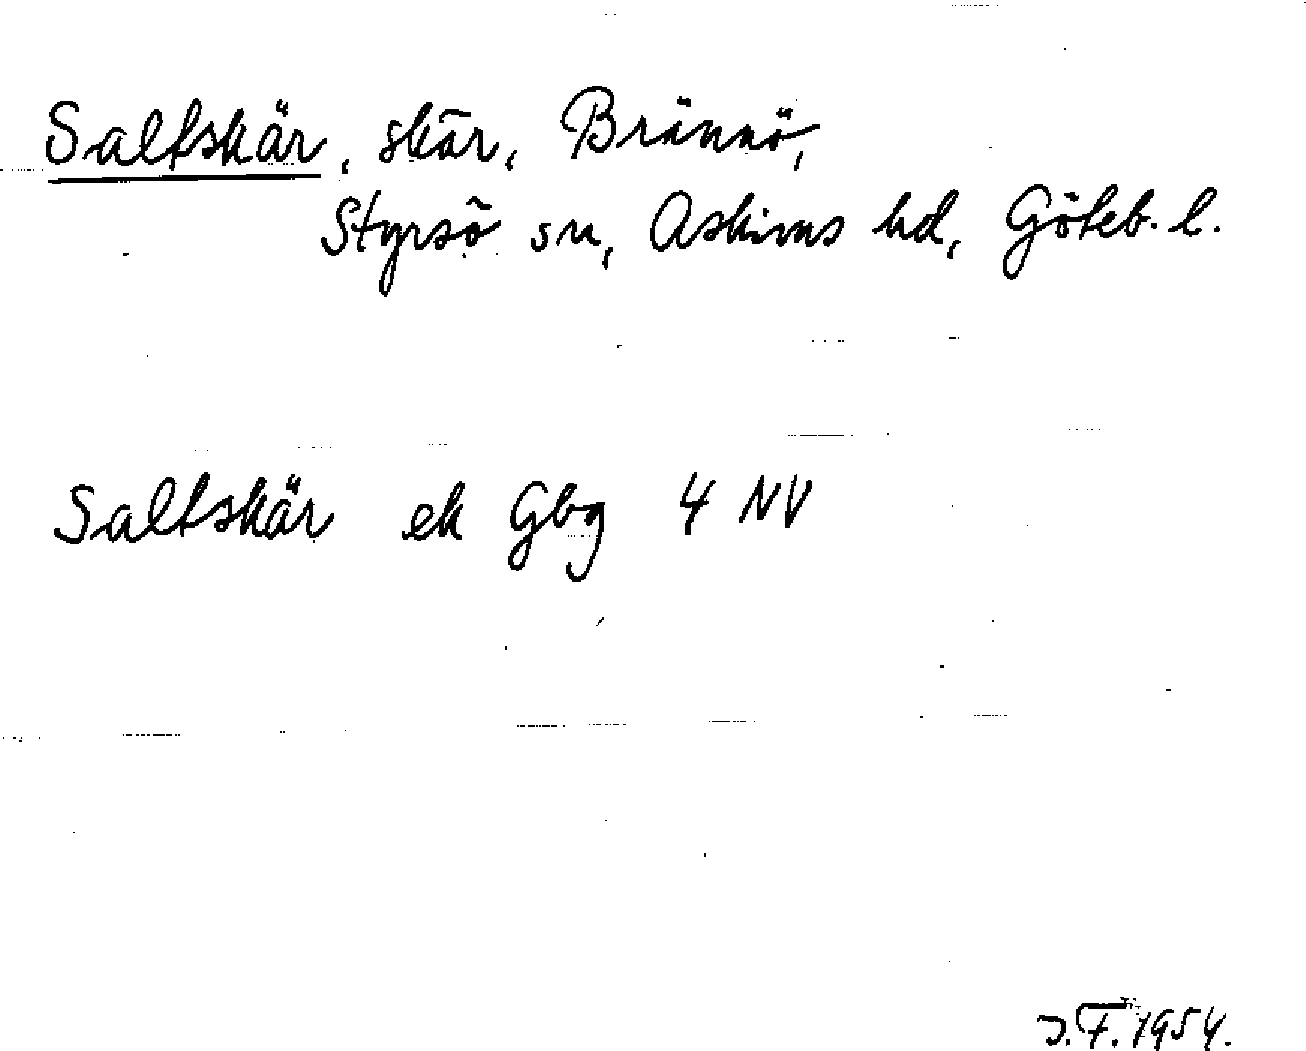 Saltskär, skär, Brännö,
Styrsö sn, Askims hd, Göteb. l.
Saltskär ek Gbg 4 NV
J.F. 1954.